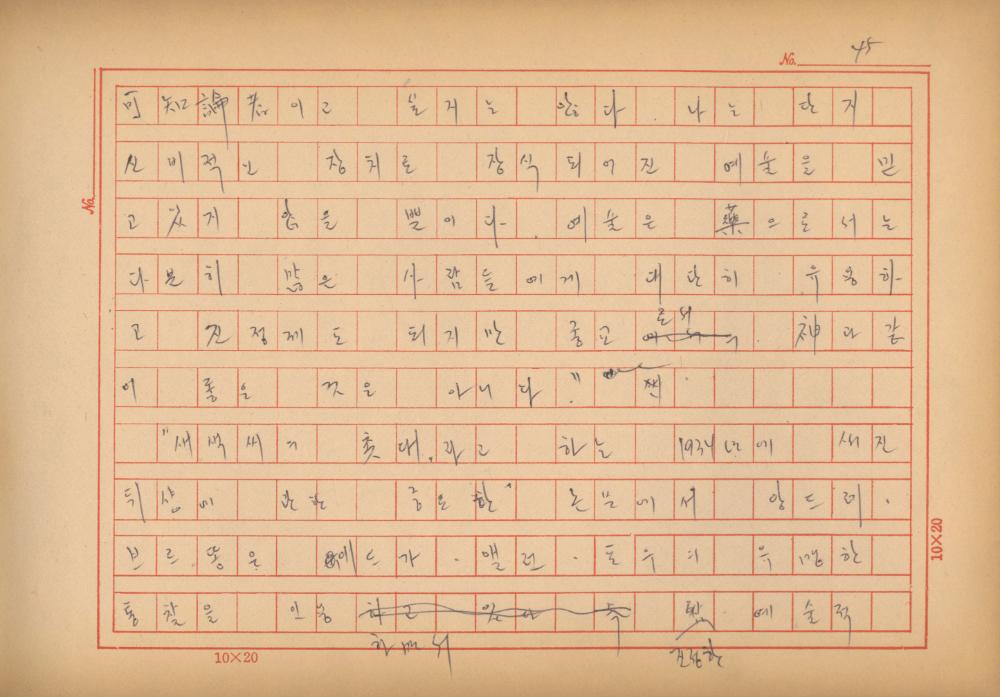 No. 45
可知論者이고 싶지는 않다. 나는 단지
신비적인 장치로 장식되어진 예술을 믿
고 있지 않을 뿐이다. 예술은 藥으로서는
다분히 많은 사람들에게 대단히 유용하
고 진정제도 되지만 종교 로서 神과 같
이 좋을 것은 아니다."
"새색씨의 촛대"라고 하는 1934년에 써진
뒤샹에 관한 중요한 논문에서 앙드레·
브르똥은 에드가·앨런·포우의 유명한
통찰을 인용 하면서 예술적
진정한
No.
10×20
10×20